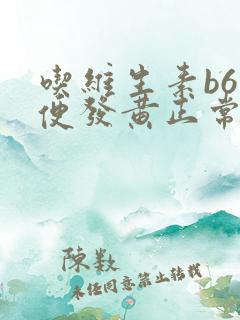 喫維生素b6
便發黃正常
陳数
未經同意禁止转载